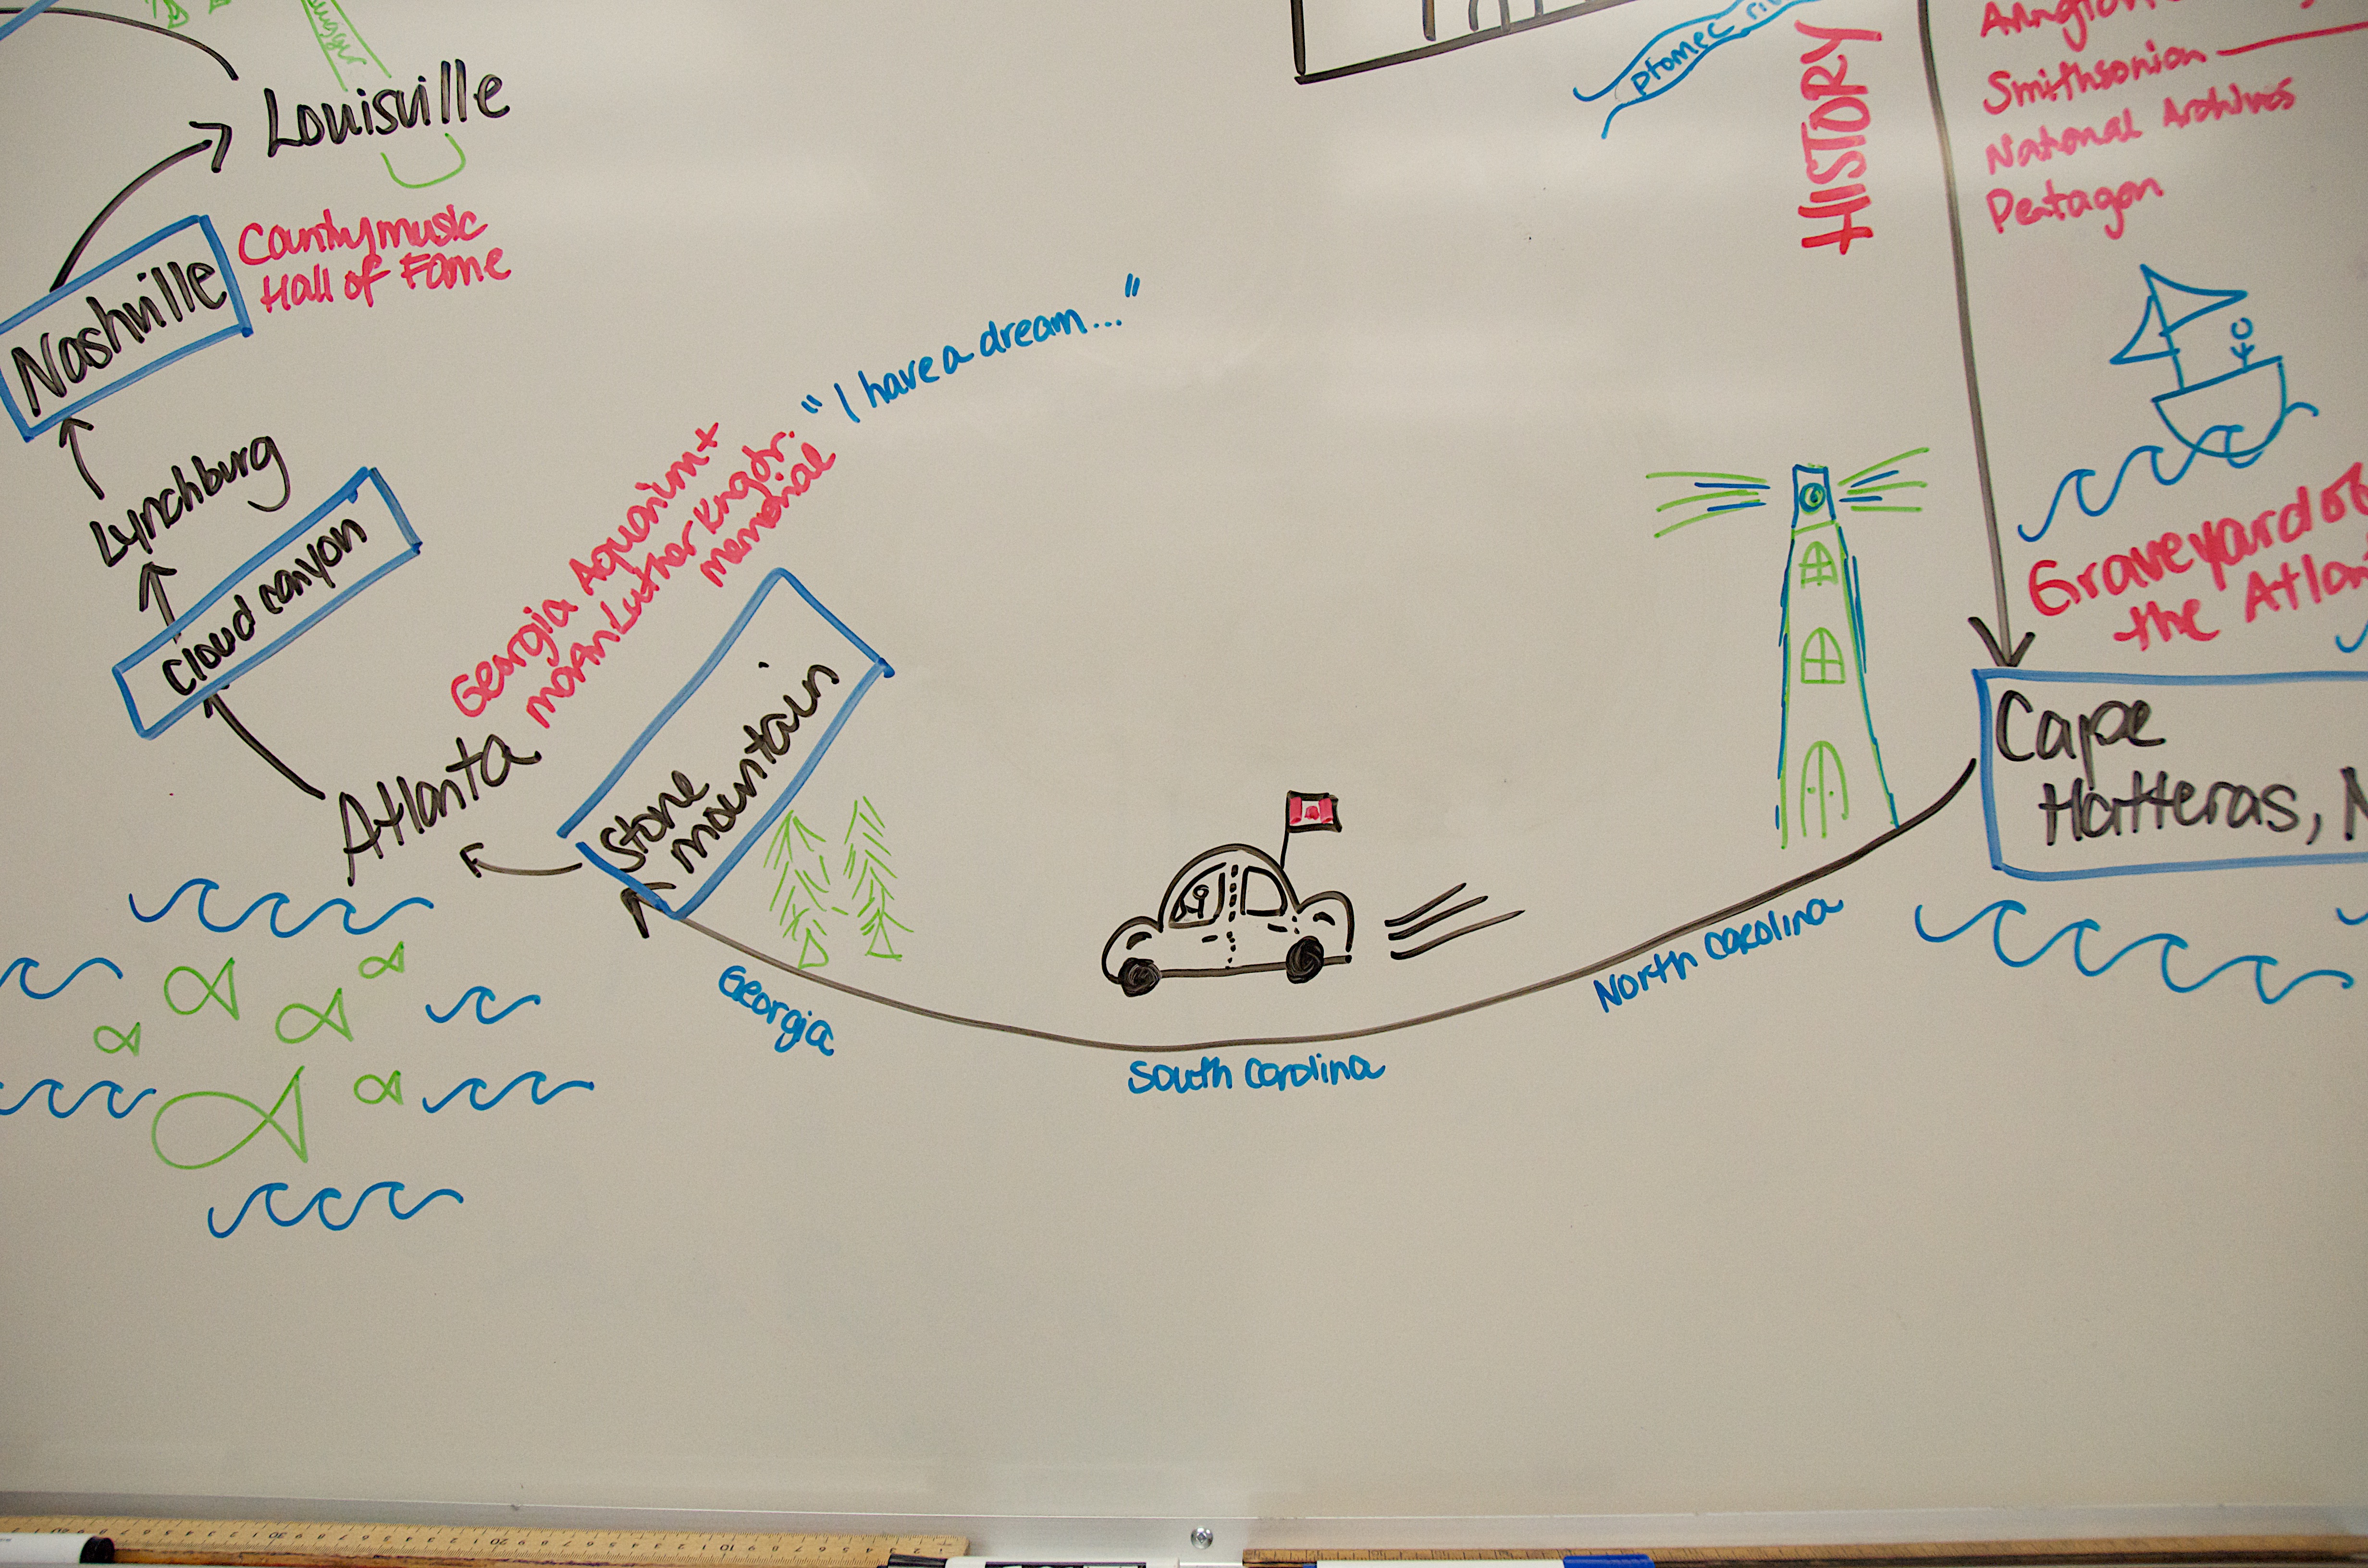 Louisville
Country music
Hall of Fame
Nashville
Lynchburg
cloud canyon
Atlanta
Georgia Aquarium +
Luther King Jr.
memorial
"I have a dream..."
Stone
mountain
Georgia
South Carolina
North Carolina
ptomec
HISTORY
Smithsonian
National Archives
Pentagon
Graveyard of
the
Cape
Hatteras, N